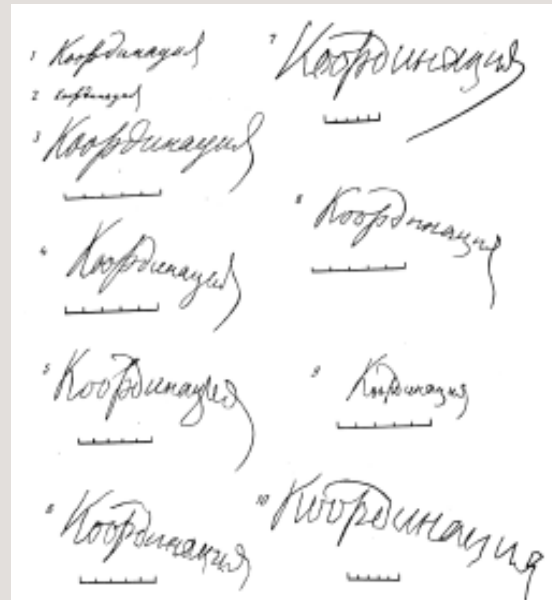 1 Координация
2 Координация
3 Координация
4 Координация
5 Координация
6 Координация
7 Координация
8 Координация
9 Координация
10 Координация